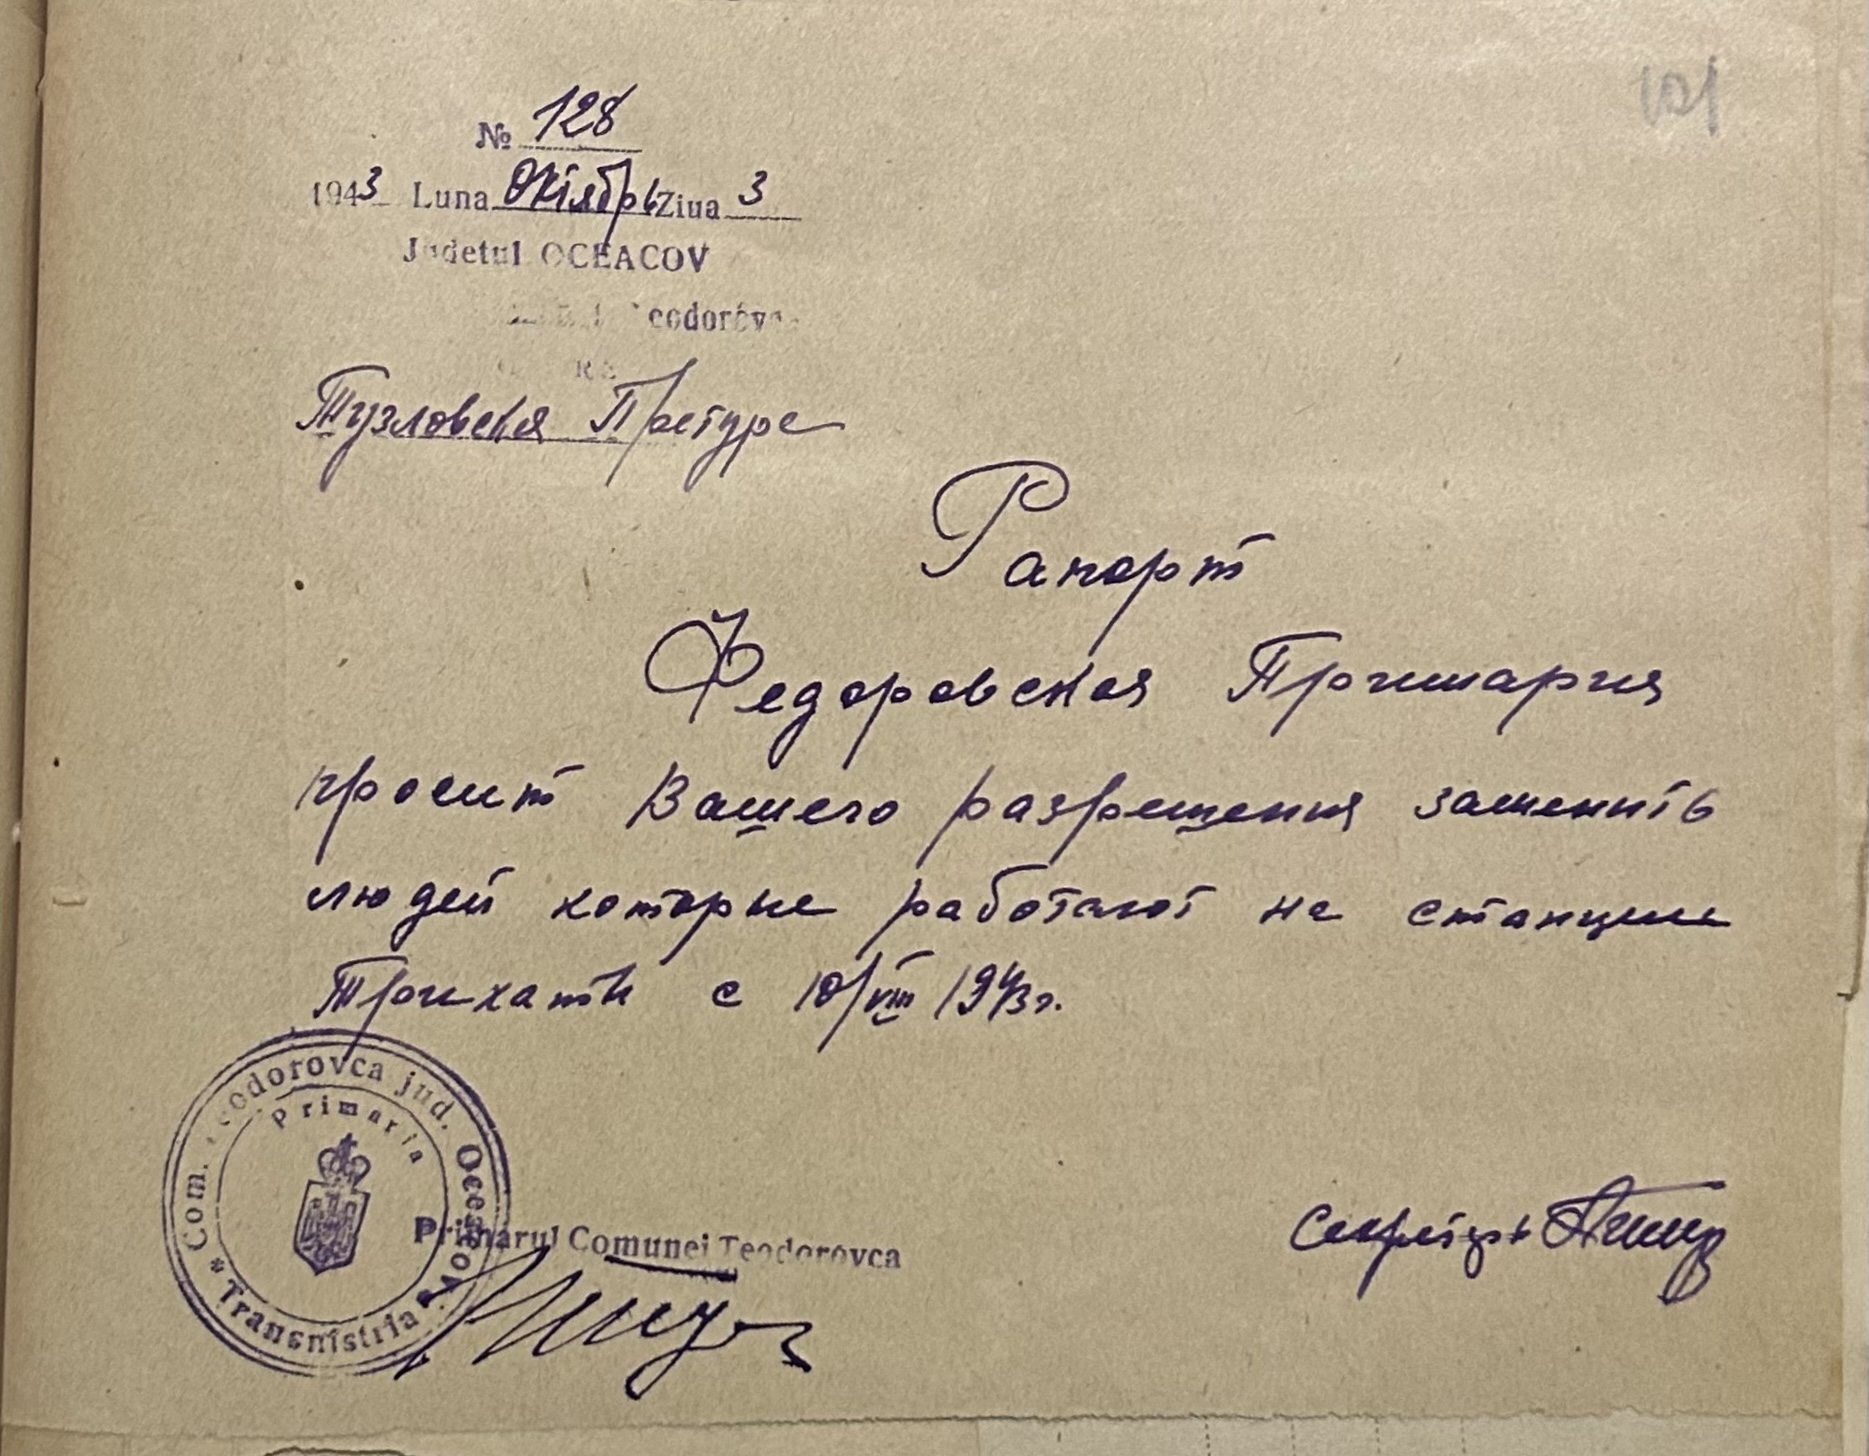 101
№ 128
1943 Luna Октябрь Ziua 3
Judetul OCEACOV
Teodorovca
Тузловская Претуре
Рапорт
Федоровская Примария
просит Вашего разрешения заменить
людей которые работают на станции
Трихаты с 10/VIII 1943 г.
* Com. Teodorovca jud. Oceacov * Transnistria
Primaria
Primarul Comunei Teodorovca
Секретарь